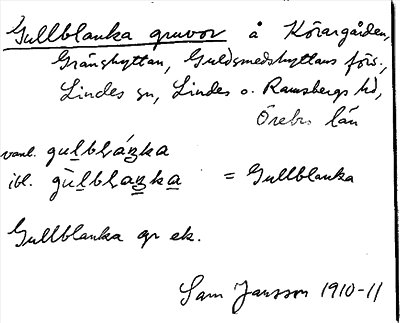 Gullblanka gruvor å Körargården,
Gränshyttan, Guldsmedshyttans förs.,
Lindes sn, Lindes o. Ramsbergs hd,
Örebro län
vanl. gulblánka
ibl. gùlblanka = Gullblanka
Gullblanka gr ek.
Sam Jansson 1910-11